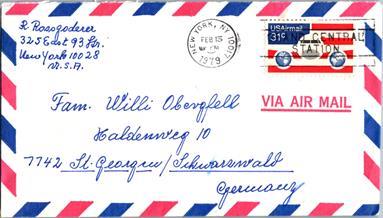 R. Rossgoderer
325 East 93 Str.
New York 10028
U.S.A.
NEW YORK, NY 10017
FEB 15
PM
1979
USAirmail
31c
GRAND CENTRAL
STATION
VIA AIR MAIL
Fam. Willi Obergfell
Haldenweg 10
7742 St. Georgen/Schwarzwald
Germany